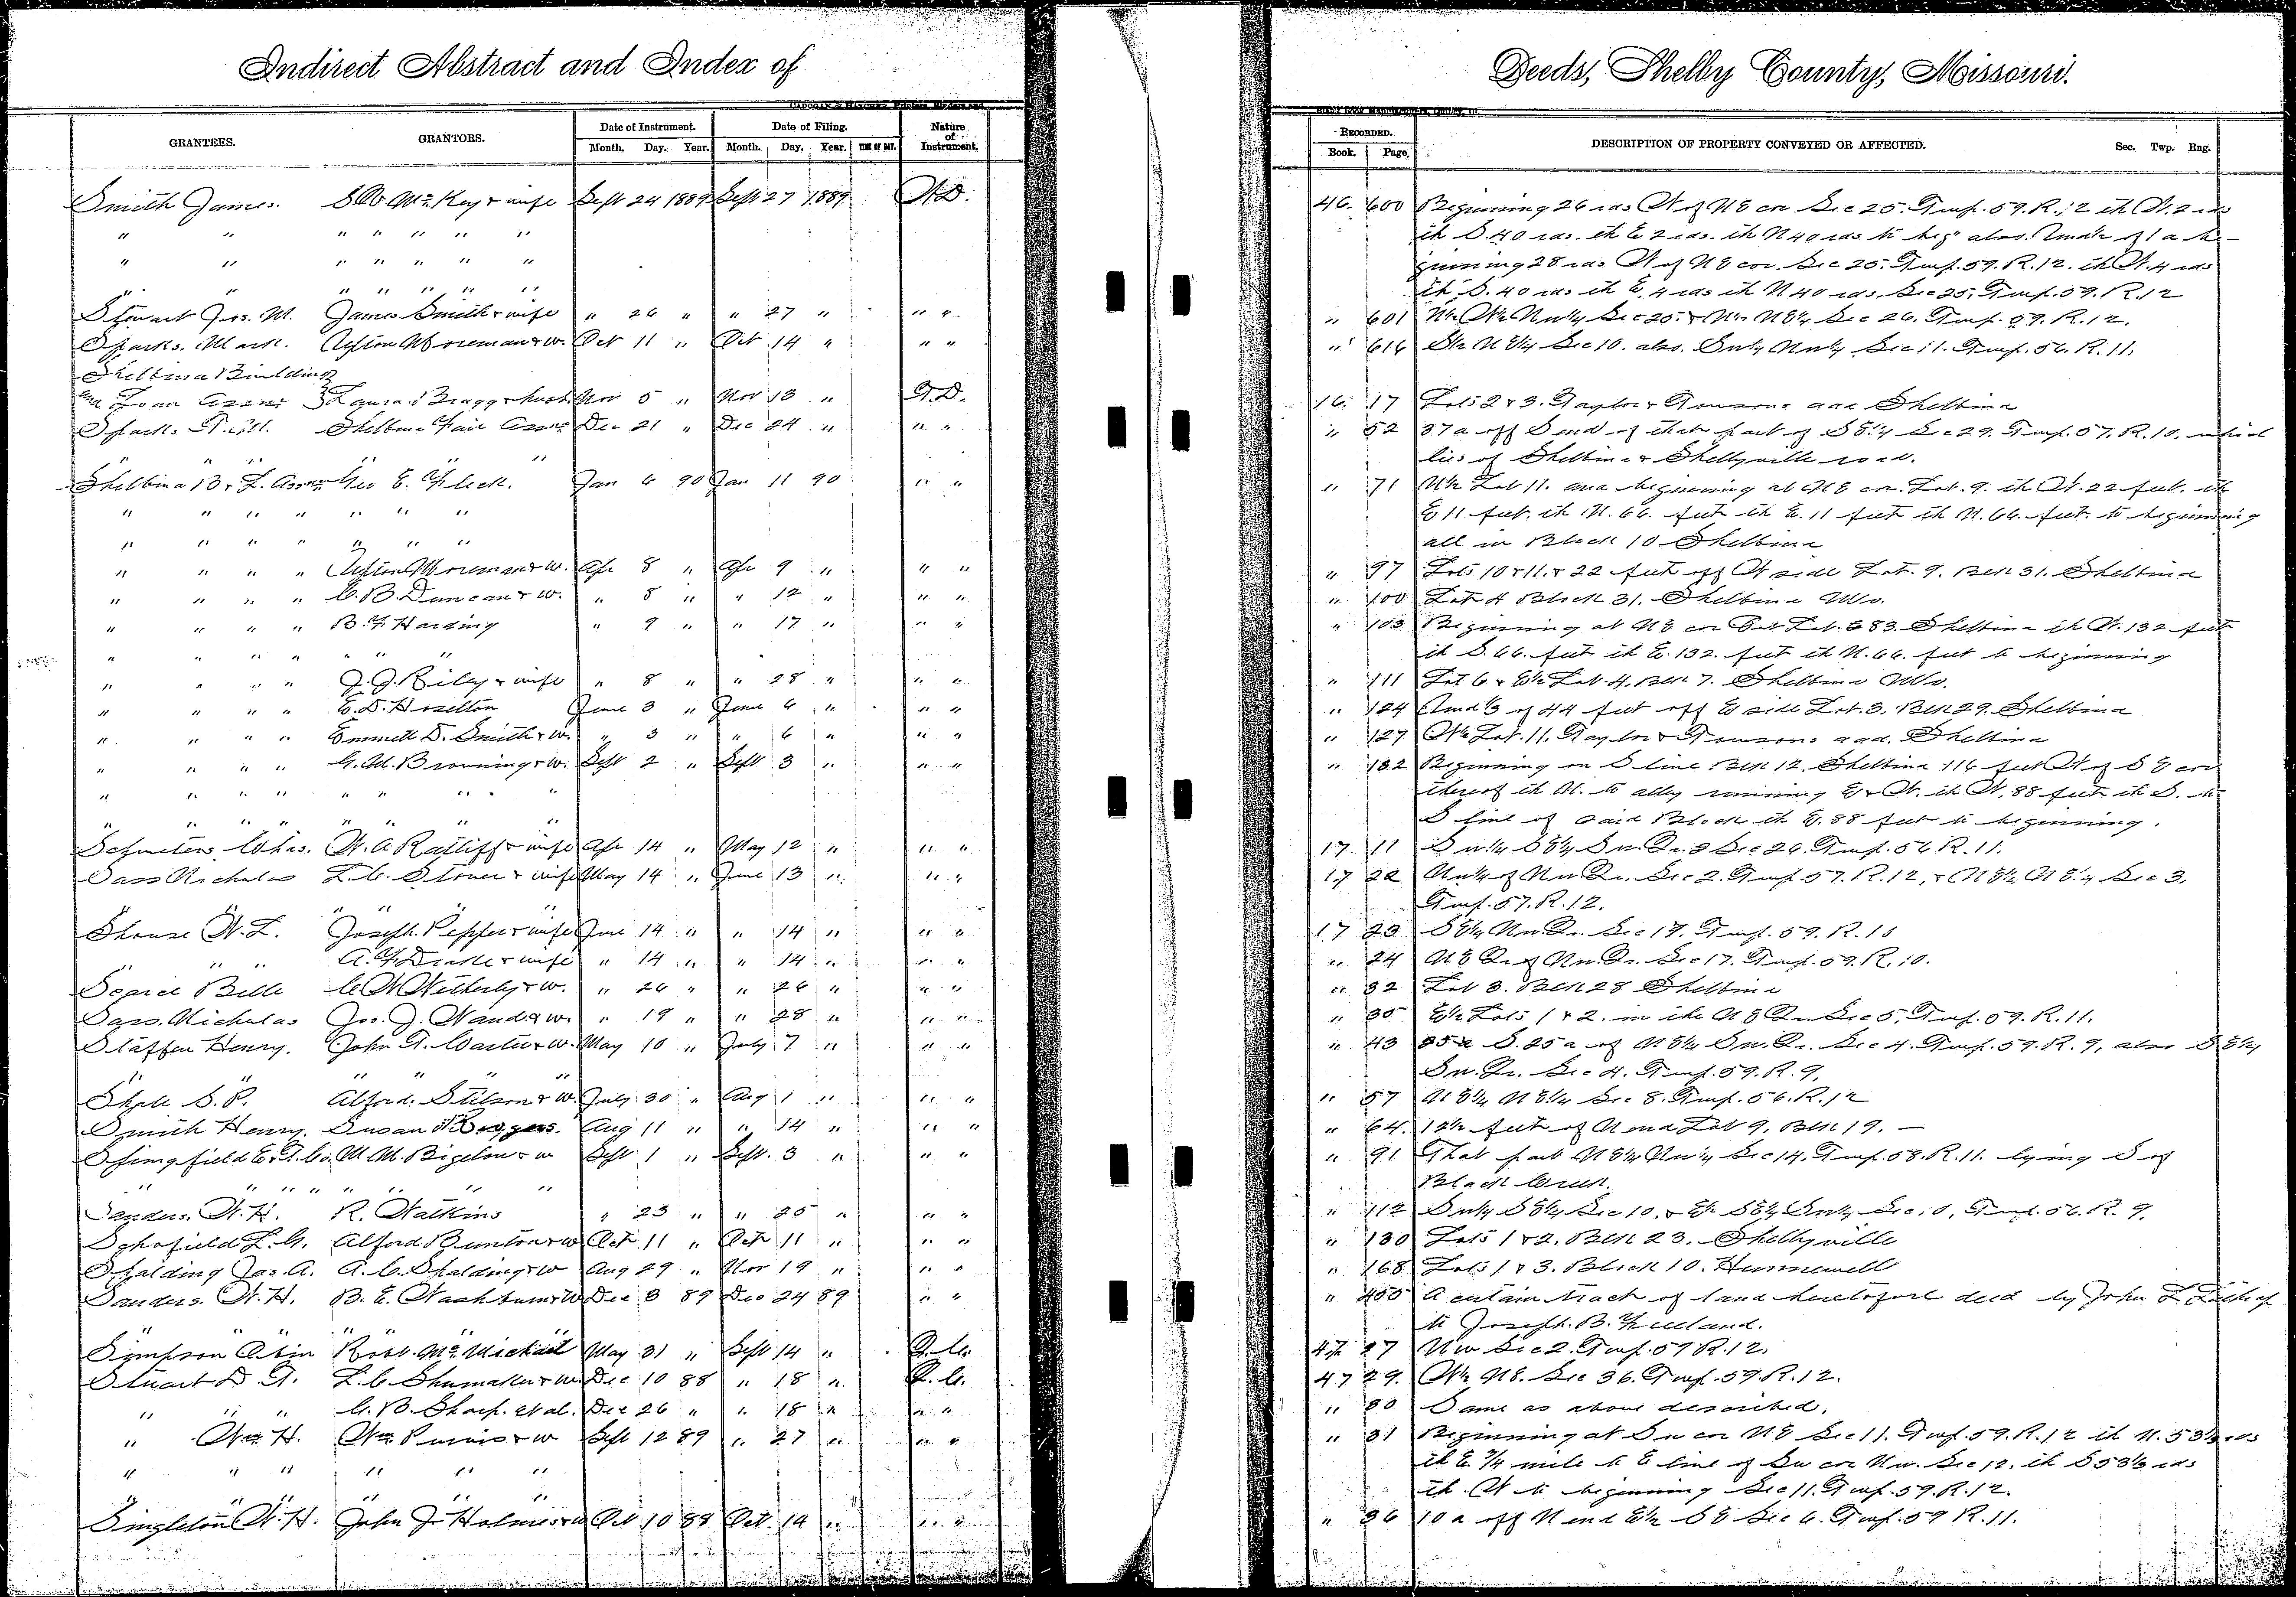 Indirect Abstract and Index of Deeds, Shelby County, Missouri.
GRANTEES. GRANTORS. Date of Instrument. Date of Filing. Nature of Instrument. RECORDED. DESCRIPTION OF PROPERTY CONVEYED OR AFFECTED. Sec. Twp. Rng.
Month. Day. Year. Month. Day. Year. TIME OF DAY. Book. Page.
Smith James. Mc Key & wife Sept 24 1889 Sept 27 1889 W.D. 46. 600 Beginning 26 rds W of NE cor Sec 25. Twp. 59. R. 12 th W. 2 rds
" " " " " " " th S. 40 rds. th E 2 rds. th N 40 rds to beg also. of 1 a be-
" " " " " " " ginning 28 rds W of NE cor. Sec 25. Twp. 59. R. 12. th W. 4 rds
" " " " " " " th S. 40 rds th E. 4 rds th N 40 rds. Sec 25. Twp. 59. R. 12
Stewart Jos. M. James Smith & wife " 26 " " 27 " " " " 601 Sec 25. & NE¼ Sec 26. Twp. 59. R. 12.
Sparks. Mark. Moreman & w. Oct 11 " Oct 14 " " " " 616 S½ NE¼ Sec 10. also. Sw¼ Nw¼ Sec 11. Twp. 56. R. 11.
Shelbina Building
and Loan Assn Laura Bragg & husb Nov 5 " Nov 13 " T.D. 16. 17 Lots 2 & 3. Taylor & Towsons add Shelbina
Sparks Shelbina Fair Assn Dec 21 " Dec 24 " " " " 52 37 a off S end of that part of SE¼ Sec 29. Twp. 57. R. 10. which
" " " " lies of Shelbina & Shelbyville road.
Shelbina B & L. Assn Geo E. Jan 6 90 Jan 11 90 " " " 71 N½ Lot 11. and beginning at NE cor. Lot. 9. th W. 22 feet. th
" " " " " " " E 11 feet. th N. 66. feet th E. 11 feet th N. 66. feet to beginning
" " " " " " " all in Block 10 Shelbina
" " " " Moreman & w. Apr 8 " Apr 9 " " " " 97 Lots 10 & 11. & 22 feet off W side Lot. 9. Blk 31. Shelbina
" " " " C. B. Duncan & w. " 8 " " 12 " " " " 100 Lot 4 Block 31. Shelbina Mo.
" " " " B. F. Harding " 9 " " 17 " " " " 103 Beginning at NE cor Out Lot. 83. Shelbina th W. 132 feet
" " " " " " " th S. 66. feet th E. 132. feet th N. 66. feet to beginning
" " " " J. J. Riley & wife " 8 " " 28 " " " " 111 Lot 6 & E½ Lot. 4. Blk 7. Shelbina Mo.
" " " " E. D. Hoselton June 3 " June 6 " " " " 124 Und ⅓ of 44 feet off E side Lot. 3. Blk 29. Shelbina
" " " " Emmett D. Smith & w. " 3 " " 6 " " " " 127 W½ Lot. 11. Taylor & Towsons add. Shelbina
" " " " Browning & w. Sept 2 " Sept 3 " " " " 132 Beginning on S line Blk 12. Shelbina 116 feet W of SE cor
" " " " " " " " thereof th N. to alley running E & W. th W. 88 feet th S. to
" " " " " " " " S line of said Block th E. 88 feet to beginning.
Chas. W. A. Ratliff & wife Apr 14 " May 12 " " " 17 11 Sec 26. Twp. 56 R. 11.
Sass Nicholas L. C. Stover & wife May 14 " June 13 " " " 17 22 Nw¼ of Nw Qr. Sec 2. Twp. 57. R. 12, & NE¼ NE¼ Sec 3.
" " " " Twp. 57. R. 12.
Shouse W. L. Joseph. Pepper & wife June 14 " " 14 " " " 17 23 SE¼ Nw. Qr. Sec 17. Twp. 59. R. 10
" " " & wife " 14 " " 14 " " " " 24 NE Qr of Nw. Qr. Sec 17. Twp. 59. R. 10.
Searce Belle C. W. Witherby & w. " 26 " " 26 " " " " 32 Lot 3. Blk 28 Shelbina
Sass. Nicholas Jos. J. Wand & w. " 19 " " 28 " " " " 35 E½ Lots 1 & 2. in the NE Qr Sec 5. Twp. 59. R. 11.
Staffen Henry. John T. Carter & w. May 10 " July 7 " " " " 43 S. 25 a of NE¼ Sw. Qr. Sec 4. Twp. 59. R. 9, also SE¼
" " " " " Sw. Qr. Sec 4. Twp. 59. R. 9.
S. P. Alford. Stilson & w. July 30 " Aug 1 " " " " 57 NE¼ NE¼ Sec 8. Twp. 56. R. 12
Smith Henry. Susan Aug 11 " " 14 " " " " 64. 12½ feet of N end Lot 9, Blk 19. —
Springfield E. & T. Co. M. M. Bigelow & w Sept 1 " Sept. 3 " " " " 91 That part NE¼ Nw¼ Sec 14. Twp. 58. R. 11. lying S of
" " " " " " " Black Creek.
Sanders. W. H. R. Watkins " 23 " " 25 " " " " 112 Sw¼ SE¼ Sec 10. & E½ SE¼ Sw¼ Sec. 10, Twp. 56. R. 9.
Schofield L. G. Alford Bunton & w Oct 11 " Oct 11 " " " " 130 Lots 1 & 2. Blk 23. Shelbyville
Spalding Jas. A. A. C. Spalding & w Aug 29 " Nov 19 " " " " 168 Lots 1 & 3. Block 10. Hunnewell
Sanders. W. H. B. E. Washburn & w Dec 3 89 Dec 24 89 " " " 455 A certain tract of land heretofore deed by John L
" " " " " to Joseph. B.
Simpson Abin Robt. Mc Michael May 31 " Sept 14 " Q.C. 47. 27 Nw Sec 2. Twp. 59 R. 12.
Stuart D. T. L. C. Shumaker & w. Dec 10 88 " 18 " Q.C. 47 29. W½ NE. Sec 36. Twp. 59. R. 12.
" " " C. B. Sharp. et al. Dec 26 " " 18 " " " " 30 Same as above described.
" Wm H. Wm Purvis & w Sept 12 89 " 27 " " " " 31 Beginning at Sw cor NE Sec 11. Twp. 59. R. 12 th N. 53⅓ rds
" " " " " " th E. ¾ mile to E line of Sw cor Nw. Sec 12. th S 53⅓ rds
" " " " " " th. W to beginning Sec 11. Twp. 59. R. 12.
Singleton W. H. John J. Holmes & w Oct 10 88 Oct. 14 " " " " 36 10 a off N end E½ SE Sec 6. Twp. 59 R. 11.